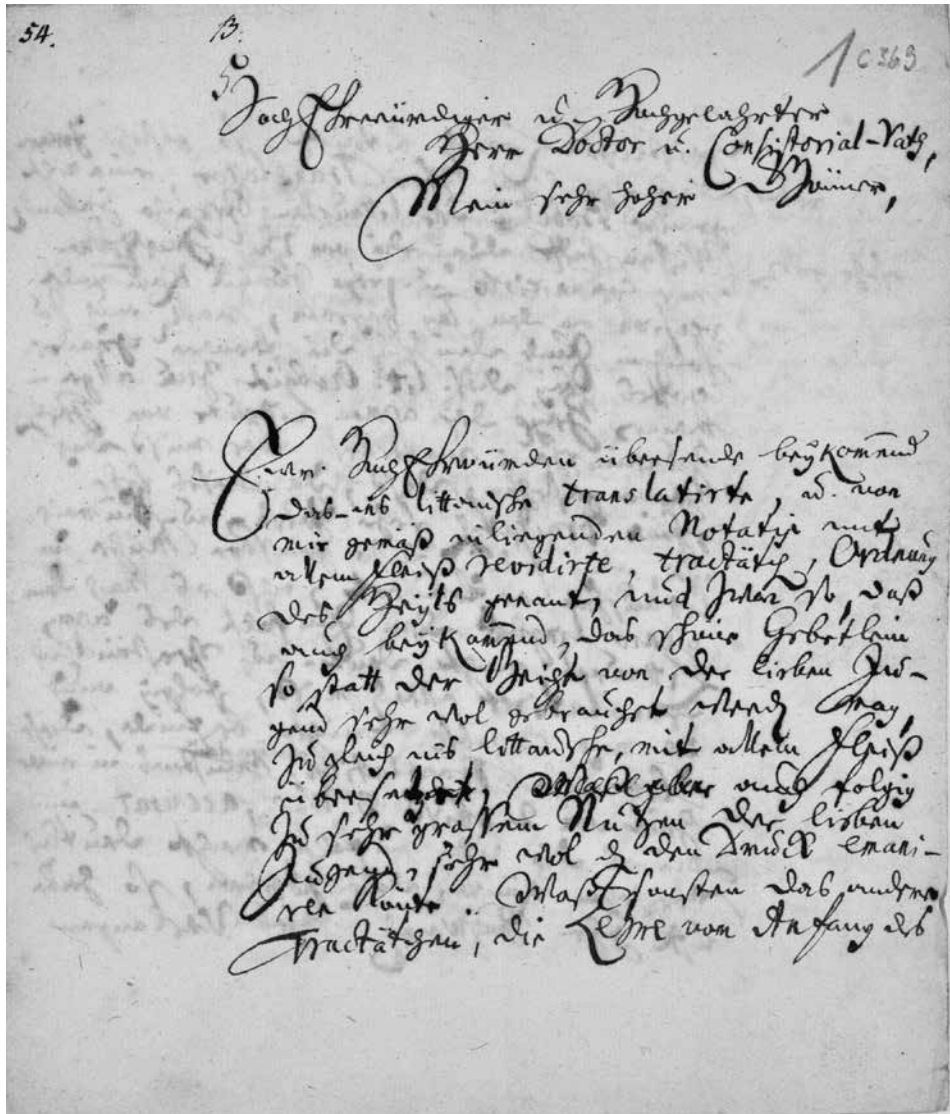 54. B. 1 C 363
HochEhrwürdiger u. Hochgelahrter
Herr Doctor u. Consistorial-Rath,
Mein sehr hoher Gönner,
Ewr. HochEhrwürden übersende beÿkom̅end
das-ins littausche translatirte, u. von
mir gemäß inliegenden Notatis mit
allem fleiß revidirte, tractätch, Ordnung
des Heÿls genant, und zwar so, daß
auch beÿkom̅end, das schöne Gebetlein
so statt der Beicht von der lieben Ju-
gend sehr wol gebrauchet werdẽ mag,
zugleich ins littausche, mit allem fleiß
übersetzet, aber auch folgig
zu sehr grossem Nutzen der lieben
Jugend, sehr wol den Druck emani-
ren könte. Waß sonsten das andere
Tractätchen, die Lehre vom Anfang des